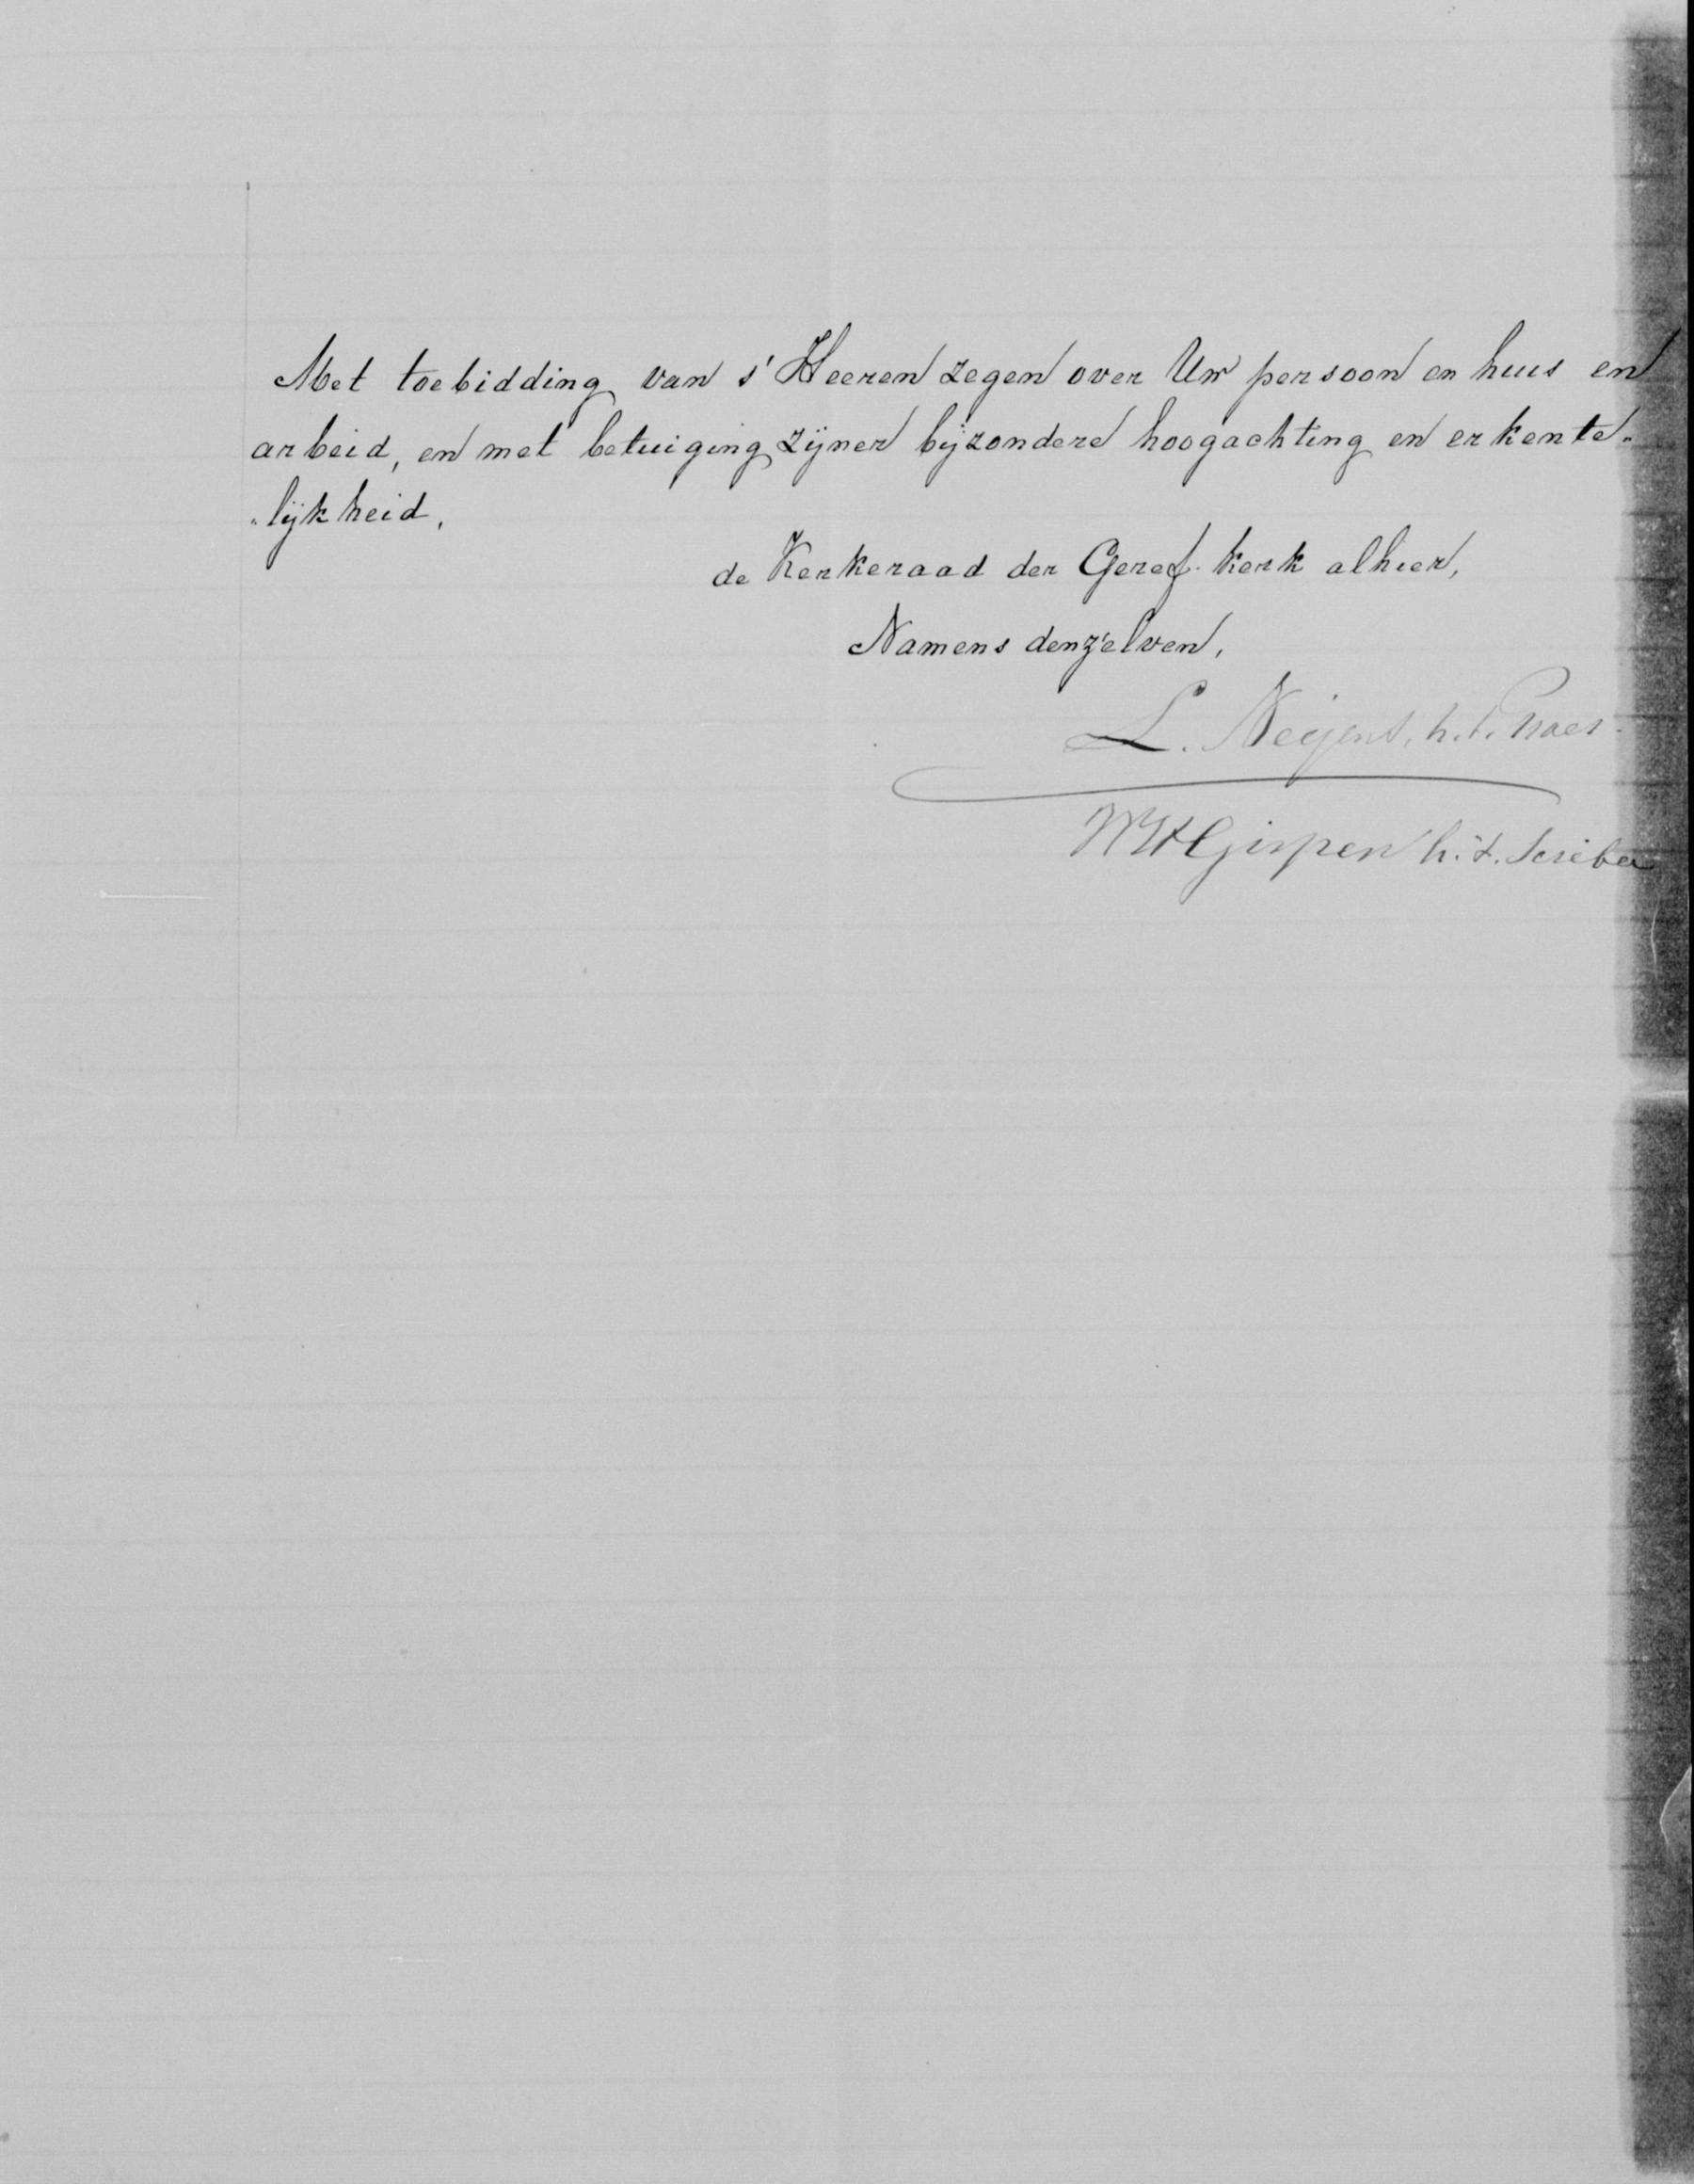 Met toebidding van s' Heeren zegen over Uw persoon en huis en
arbeid, en met betuiging zijner bijzondere hoogachting en erkente„
„lijkheid,
de Kerkeraad der Geref. kerk alhier,
Namens denzelven,
L. Neijens, h. t. Praes.
WHGispen h. t. Scriba